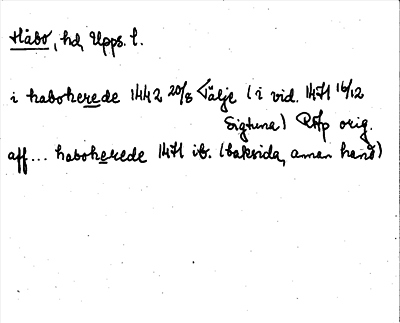 Håbo, hd, Upps. l.
i haboherede 1442 20/8 Tälje (i vid. 1471 16/12
Sigtuna) RAp orig.
aff... haboherede 1471 ib. (baksida, annan hand)